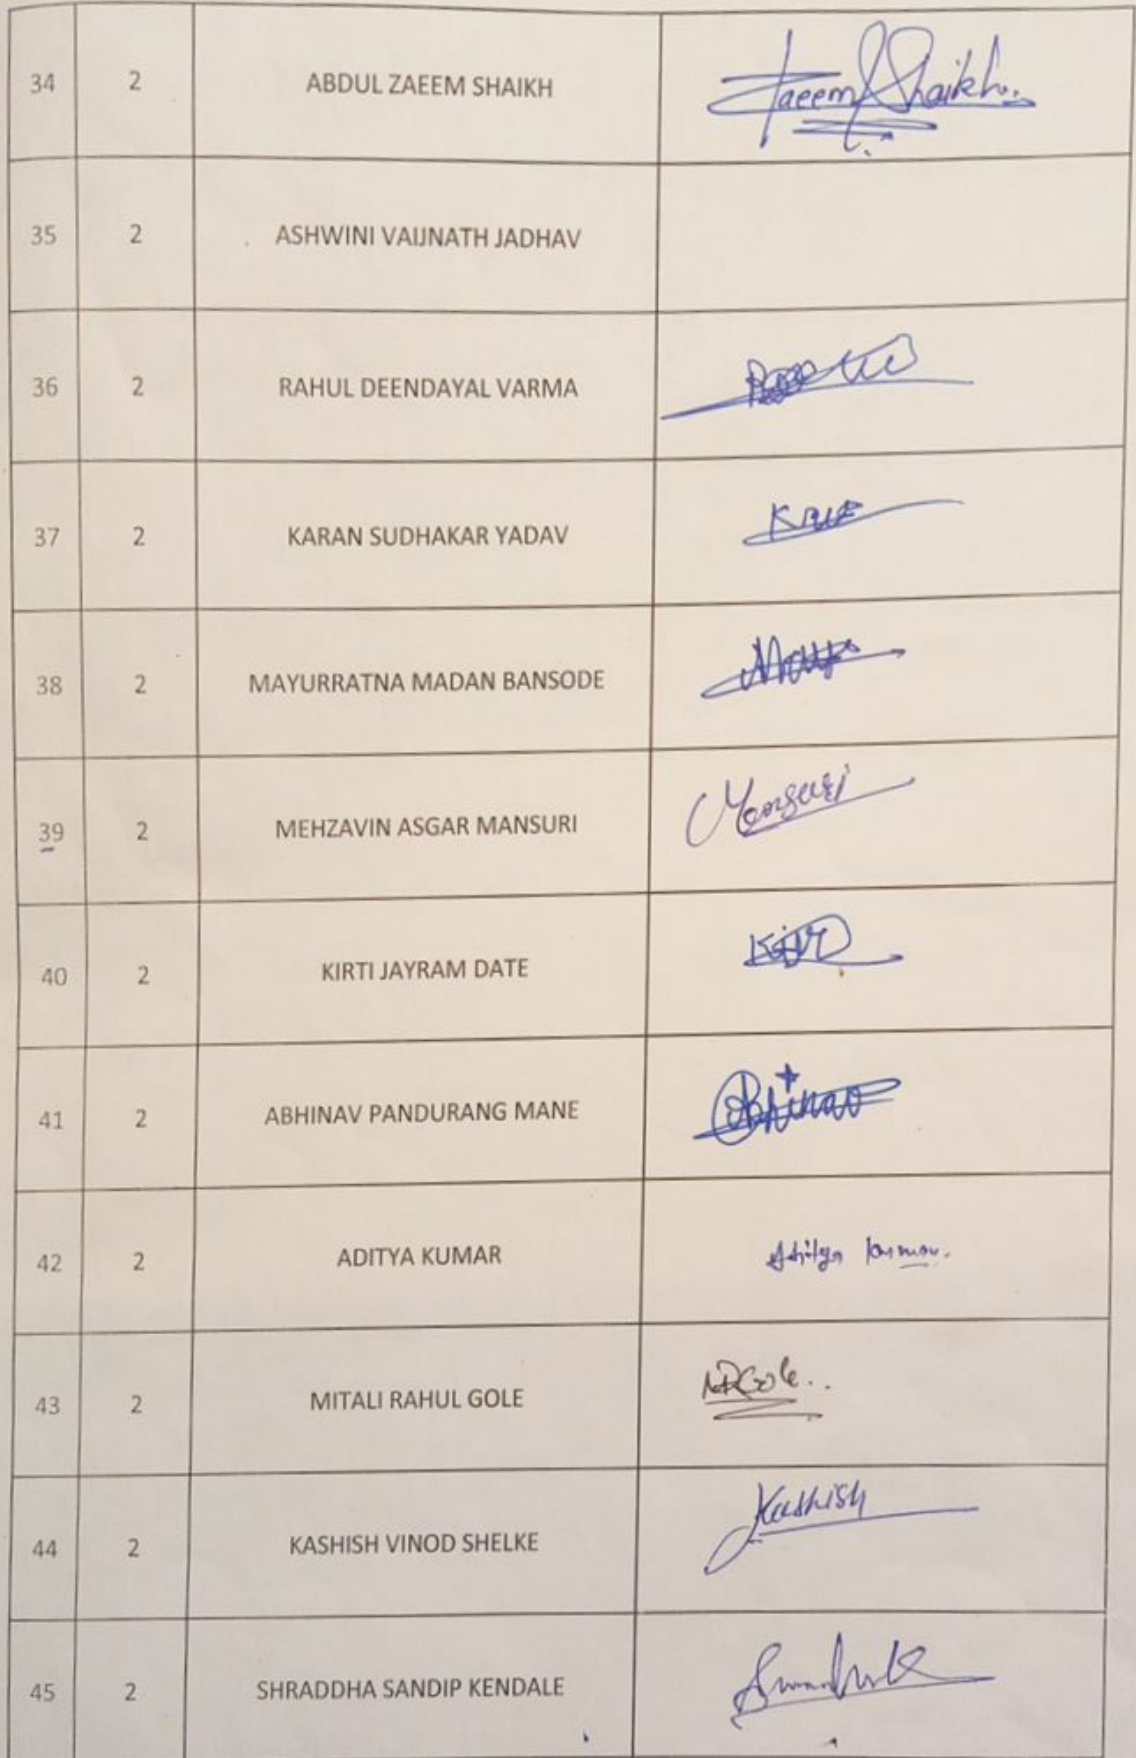 34 2 ABDUL ZAEEM SHAIKH Zaeem Shaikh.
35 2 ASHWINI VAIJNATH JADHAV
36 2 RAHUL DEENDAYAL VARMA
37 2 KARAN SUDHAKAR YADAV
38 2 MAYURRATNA MADAN BANSODE
39 2 MEHZAVIN ASGAR MANSURI Mansuri
40 2 KIRTI JAYRAM DATE
41 2 ABHINAV PANDURANG MANE Abhinav
42 2 ADITYA KUMAR Aditya Kumar.
43 2 MITALI RAHUL GOLE MRGole..
44 2 KASHISH VINOD SHELKE Kashish
45 2 SHRADDHA SANDIP KENDALE